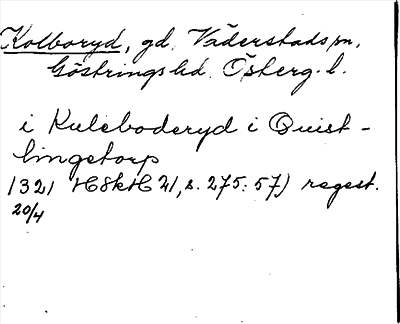 Kolboryd, gd, Väderstads sn,
Göstrings hd. Österg. l.
i Kuleboderyd i Quist-
lingetorp
1321 HSkH 21, s. 275: 57) regest.
20/4